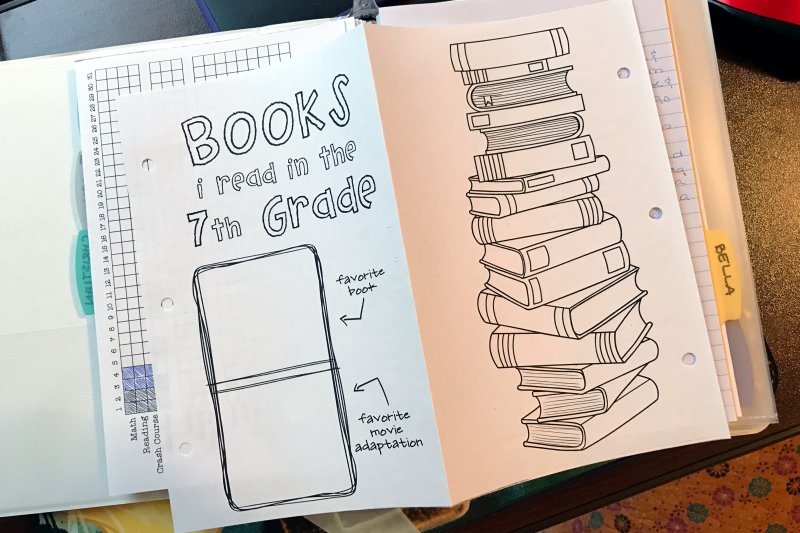 BOOKS
i read in the
7th Grade
favorite
book
favorite
movie
adaptation
1 2 3 4 5 6 7 8 9 10 11 12 13 14 15 16 17 18 19 20 21 22 23 24 25 26 27 28 29 30 31
Math
Reading
Crash Course
BELLA